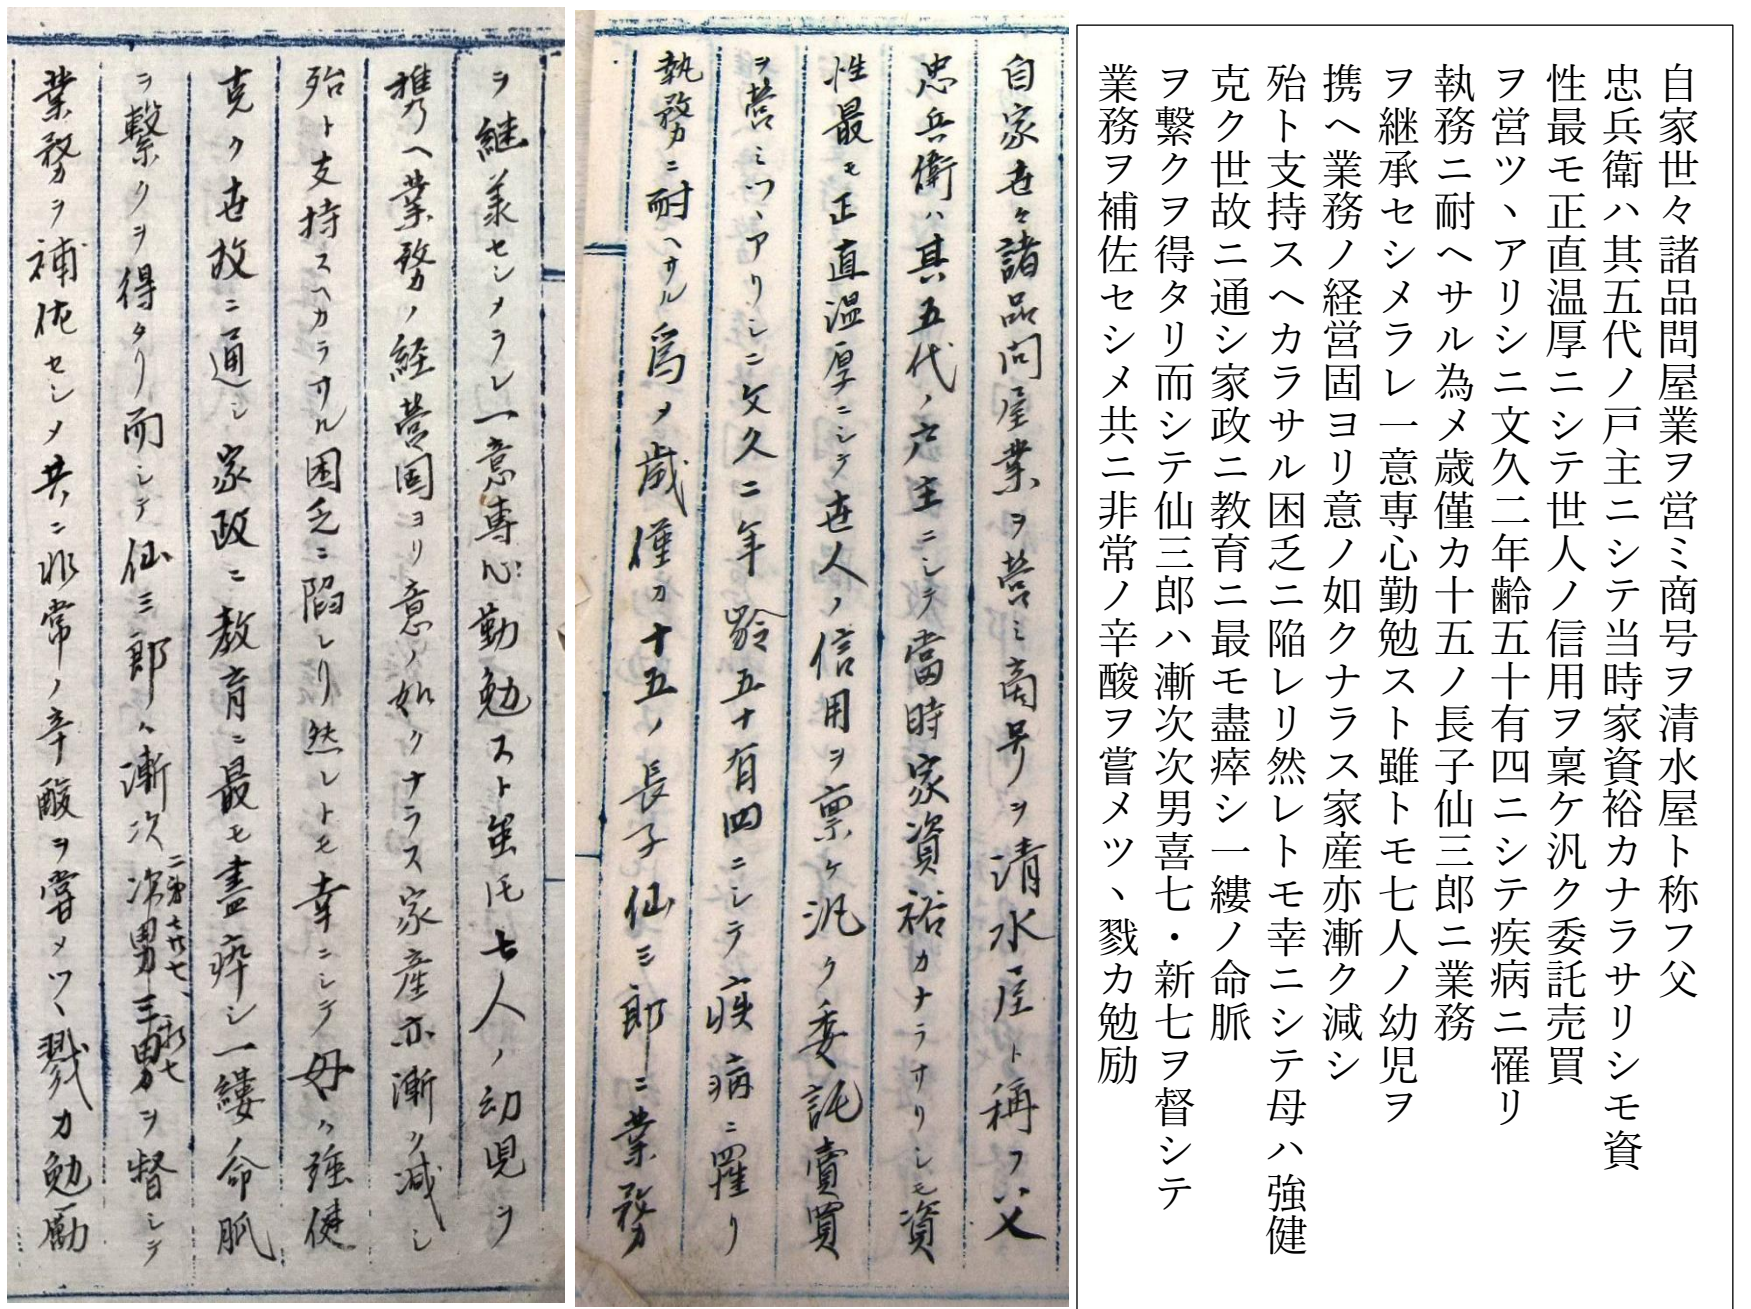 自家世々諸品問屋業ヲ営ミ商号ヲ清水屋ト称フ父
忠兵衛ハ其五代ノ戸主ニシテ当時家資裕カナラサリシモ資
性最モ正直温厚ニシテ世人ノ信用ヲ稟ケ汎ク委託売買
ヲ営ツヽアリシニ文久二年齢五十有四ニシテ疾病ニ罹リ
執務ニ耐ヘサル為メ歳僅カ十五ノ長子仙三郎ニ業務
ヲ継承セシメラレ一意専心勤勉スト雖トモ七人ノ幼児ヲ
携ヘ業務ノ経営固ヨリ意ノ如クナラス家産亦漸ク減シ
殆ト支持スヘカラサル困乏ニ陥レリ然レトモ幸ニシテ母ハ強健
克ク世故ニ通シ家政ニ教育ニ最モ盡瘁シ一縷ノ命脈
ヲ繋クヲ得タリ而シテ仙三郎ハ漸次次男喜七・新七ヲ督シテ
業務ヲ補佐セシメ共ニ非常ノ辛酸ヲ嘗メツヽ戮カ勉励
自家世々諸品問屋業ヲ営ミ商号ヲ清水屋ト稱フ父
忠兵衛ハ其五代ノ戸主ニシテ當時家資裕カナラサリシモ資
性最モ正直温厚ニシテ世人ノ信用ヲ稟ケ汎ク委託賣買
ヲ営ミツヽアリシニ文久二年齢五十有四ニシテ疾病ニ罹リ
執務ニ耐ヘサル爲メ歳僅カ十五ノ長子仙三郎ニ業務
ヲ継承セシメラレ一意専心勤勉スト雖トモ七人ノ幼児ヲ
携ヘ業務ノ経営固ヨリ意ノ如クナラス家産亦漸ク減シ
殆ト支持スヘカラサル困乏ニ陥レリ然レトモ幸ニシテ母ハ強健
克ク世故ニ通シ家政ニ教育ニ最モ盡瘁シ一縷命脈
ヲ繋クヲ得タリ而シテ仙三郎ハ漸次次男三男ヲ督シテ
二弟喜七、新七
業務ヲ補佐セシメ共ニ非常ノ辛酸ヲ嘗メツヽ戮力勉励